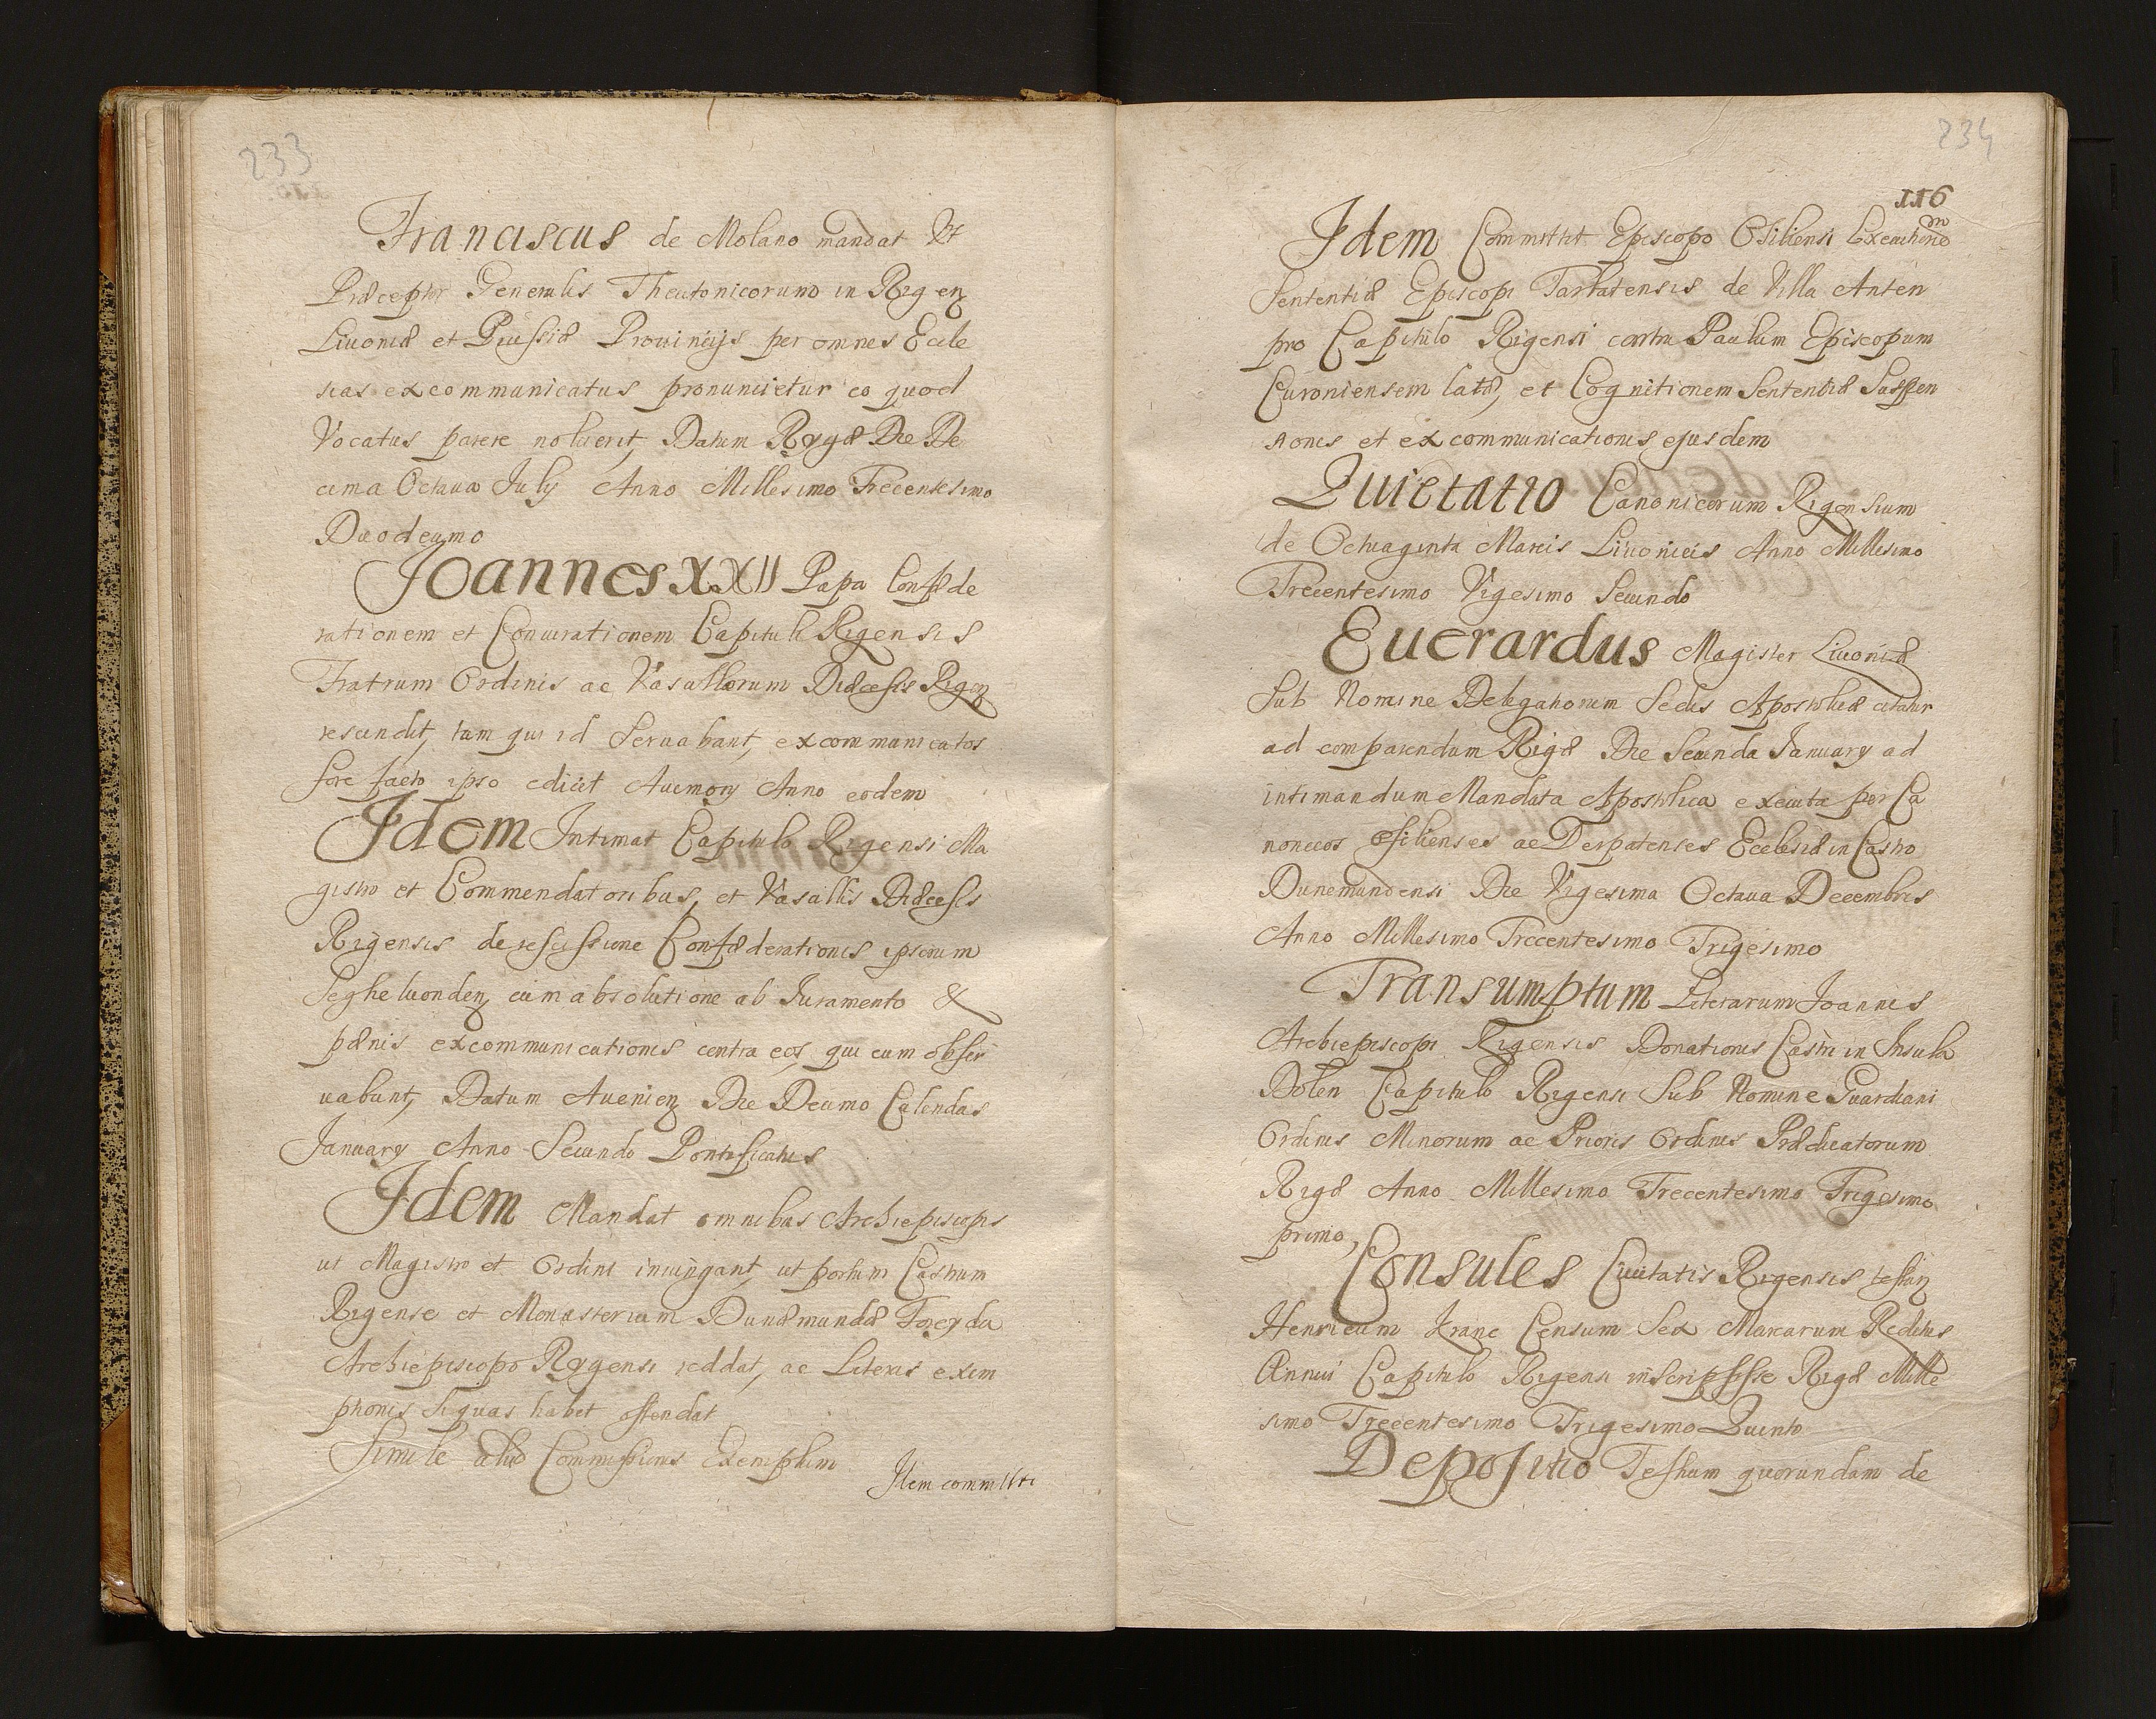 233
Franciscus de Molano mandat Vt
Præceptor Generalis Theutonicorum in Rigen
Liuoniæ et Prussiæ Prouincijs per omnes Eccle
sias excommunicatus pronuncietur eo quod
Vocatus parere noluerit, Datum Rygæ Die De
cima Octaua July Anno Millesimo Trecentesimo
Duodecimo
Joannes XXII Papa Confæde
rationem et Coniurationem Capituli Rigensis
Fratrum Ordinis ac Vasallorum Diæcesis Rigen
rescindit, tum qui id Seruabant, excommunicatos
fore facto ipso edicit Anno eodem
Idem Intimat Capitulo Rigensi Ma
gistro et Commendatoribus, et Vasallis Diæcesis
Rigensis de rescissione Confæderationis ipsorum
Segheluonden cum absolutione ab Iuramento &
pænis excommunicationis contra eos, qui eam obser
uabunt, Datum Auenien Die Decimo Calendas
January Anno Secundo Pontificatus
Idem Mandat omnibus Archiepiscopis
ut Magistro et Ordini iniungant, ut portum Castrum
Rigense et Monasterium Dunæmundæ Toreyda
Archiepiscopo Rygensi reddat, ac Literas exem
ptionis Siquas habet ostendat
Simile aliud Commissionis Exemplum
Idem committi
234
116
Idem Committit Episcopo Osiliensi Executionem
Sententiæ Episcopi Tarbatensis de Villa Anten
pro Capitulo Rigensi contra Paulum Episcopum
Curoniensem latæ, et Cognitionem Sententiæ Suspen
sionis et excommunicationis ejusdem
Quietatio Canonicorum Rigensium
de Octuaginta Marcis Liuonicis Anno Millesimo
Trecentesimo Vigesimo Secundo
Euerardus Magister Liuoniæ
Sub Nomine Delegatorum Sedis Apostolicæ citatur
ad comparendum Rigæ Die Secunda January ad
intimandum Mandata Apostolica executa per Ca
nonicos Osilienses ac Derpatenses Ecclesiæ in Castro
Dunemundensi Die Vigesima Octaua Decembris
Anno Millesimo Trecentesimo Trigesimo
Transumptum Literarum Joannis
Archiepiscopi Rigensis Donationis Castri in Insula
Dolen Capitulo Rigensi Sub Nomine Guardiani
Ordinis Minorum ac Prioris Ordinis Prædicatorum
Rigæ Anno Millesimo Trecentesimo Trigesimo
primo,
Consules Ciuitatis Rigensis testan
Henricum Krane Censum Sex Marcarum Reditus
Annui Capitulo Rigensi inscripsisse Rigæ Mille
simo Trecentesimo Trigesimo Quinto
Depositio Testium quorundam de